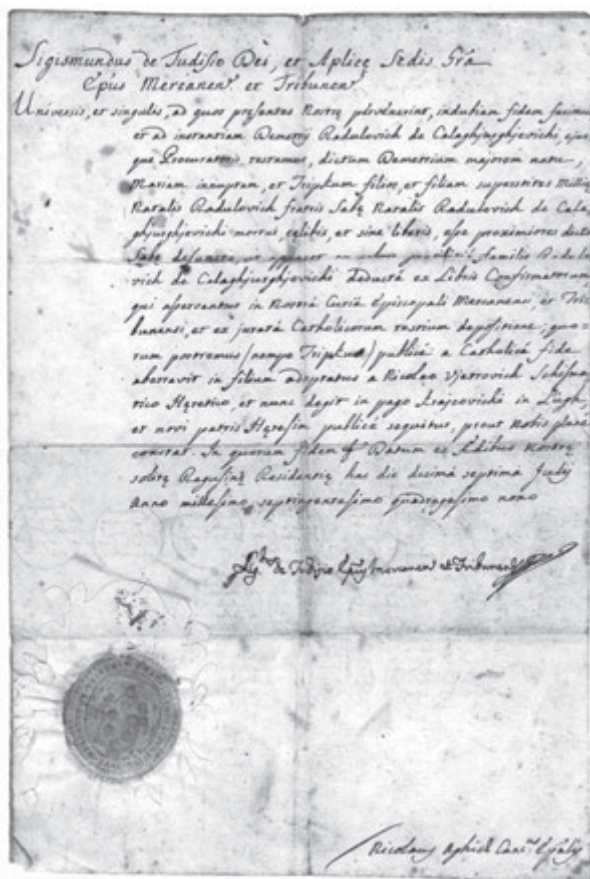 Sigismundus de Tudisio Dei, et Aplicę Sedis Gra
Epus Mercanen et Tribunen
Universis, et singulis, ad quos presentes Nostrę pervenerint, indubiam fidem facimus
et ad instantiam Demetry Radulovich de Calaghjurghjevichi, ejus
que Procuratoris, testamur, dictum Demetrium majorem natu,
Mariam innuptam, et Tripkum filios, et filiam superstites
Natalis Radulovich fratris Sabę Natalis Radulovich de Cala
ghjurghjevichi mortui, celibis, et sine liberis, esse proximiores dicto
Sabę defuncto, ut apparet familię Radulo
vich de Calaghjurghjevichi deducta ex Libris Confirmatorum
qui asservantur in Nostrâ Curiâ Episcopali Mercanensi, et Tri
bunensi, et ex juratâ Catholicorum testium depositione; quo=
rum postremus (nempe Tripkus) publicè a Catholicâ fide
aberravit in filium adoptatus a Nicolao Vjetrovich Schisma
tico Hęretico, et nunc degit in pago in
et novi patris Hęresim publicè sequitur, prout Nobis planè
constat. In quorum fidem Datum ex Ædibus Nostrę
solitę Ragusinę Residentię hac die decimâ septimâ
Anno millesimo, septingentesimo quadragesimo nono
de Tudisio Epus Mercanen et Tribunen
Nicolaus Canc.